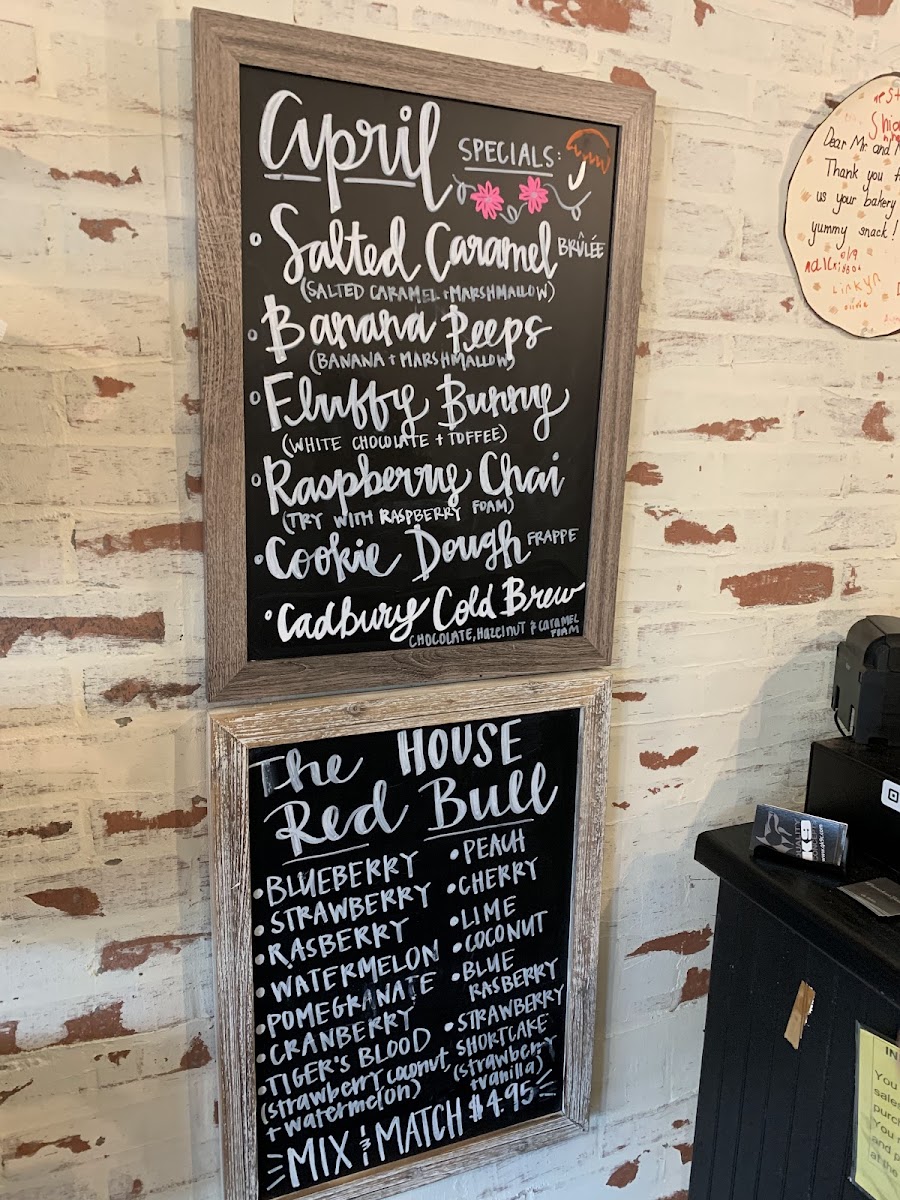 April SPECIALS:
Salted Caramel BRÛLÉE
(SALTED CARAMEL + MARSHMALLOW)
Banana Peeps
(BANANA + MARSHMALLOW)
Fluffy Bunny
(WHITE CHOCOLATE + TOFFEE)
Raspberry Chai
(TRY WITH RASPBERRY FOAM)
Cookie Dough FRAPPE
Cadbury Cold Brew
CHOCOLATE, Hazelnut & CARAMEL
FOAM
The HOUSE
Red Bull
• BLUEBERRY
• STRAWBERRY
• RASBERRY
• WATERMELON
• POMEGRANATE
• CRANBERRY
• TIGER'S BLOOD
(strawberry, coconut,
+ watermelon)
• PEACH
• CHERRY
• LIME
• COCONUT
• BLUE
RASBERRY
• STRAWBERRY
SHORTCAKE
(strawberry
+ vanilla)
MIX & MATCH $4.95
Dear Mr and
Thank you
us your bakery
yummy snack!
Linkyn
IN
You
sales
purch
You
and p
at the